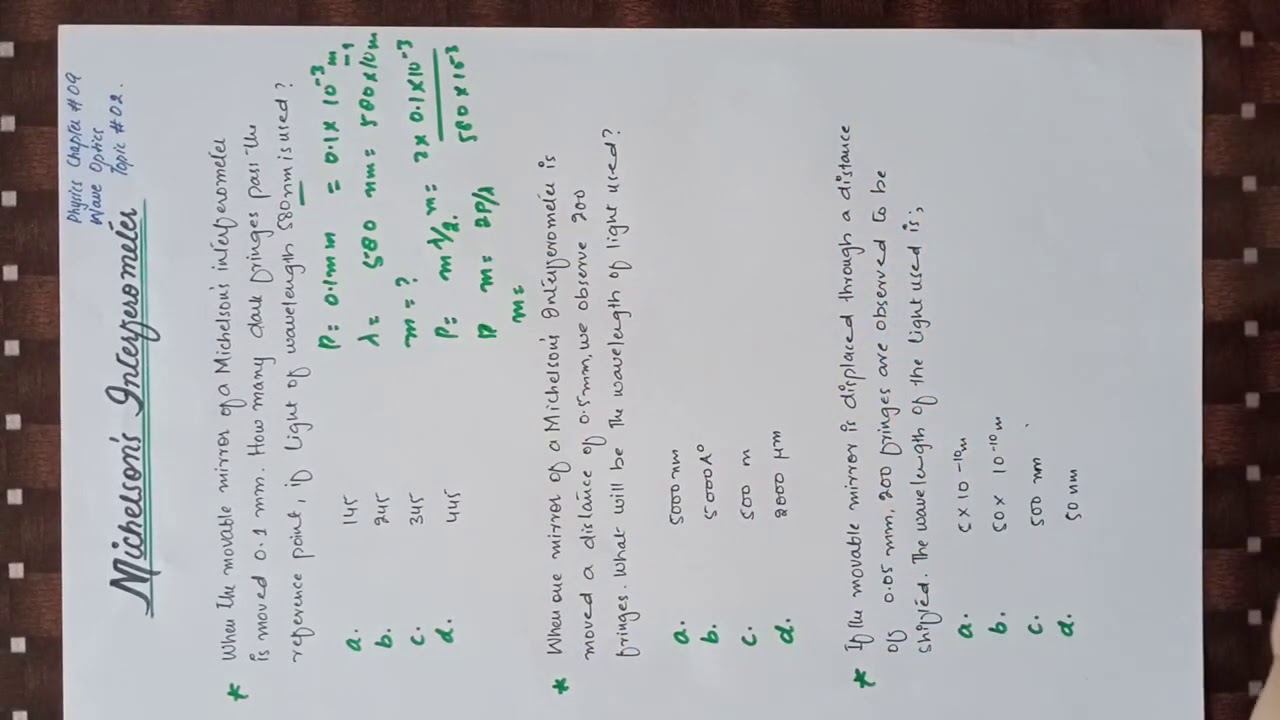 Physics Chapter #09
Wave Optics
Topic #02.
Michelson's Interferometer
* When the movable mirror of a Michelson's interferometer
is moved 0.1 mm. How many dark fringes pass the
reference point, if light of wavelength 580nm is used?
a. 145
b. 245
c. 345
d. 445
P= 0.1mm = 0.1 x 10⁻³ m
λ= 580 nm= 580x10⁻⁹m
m=?
P= mλ/2. m= 2x 0.1x10⁻³
580 x 10⁻³
P m= 2P/λ
m=
* When one mirror of a Michelson's Interferometer is
moved a distance of 0.5mm, we observe 200
fringes. What will be the wavelength of light used?
a. 5000 nm
b. 5000A°
c. 500 m
d. 2000 μm
* If the movable mirror is displaced through a distance
of 0.05 mm, 200 fringes are observed to be
shifted. The wavelength of the light used is;
a. 5 x 10⁻¹⁰m
b. 50 x 10⁻¹⁰m
c. 500 nm
d. 50 nm